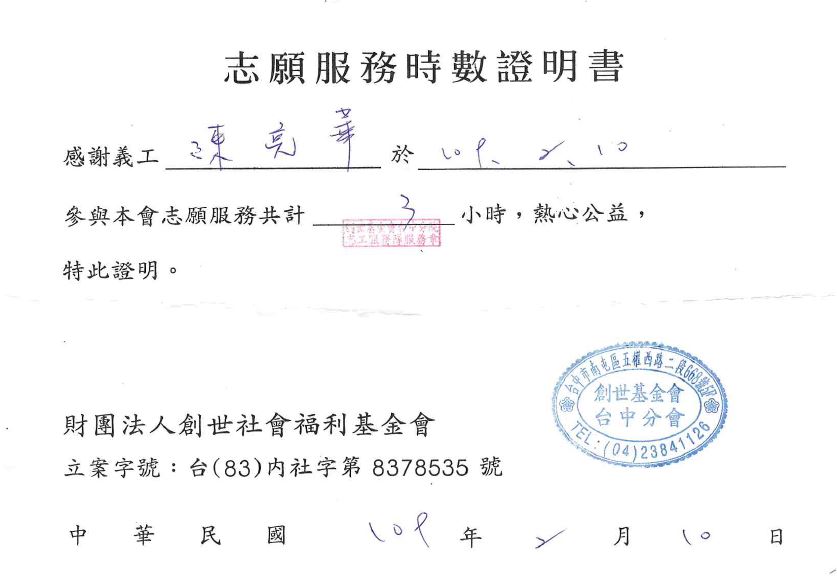 志願服務時數證明書
感謝義工 陳亮華 於 109. 2. 10
參與本會志願服務共計 3 小時，熱心公益，
特此證明。
台中市南屯區五權西路二段668號
創世基金會
台中分會
TEL：(04)23841126
財團法人創世社會福利基金會
立案字號：台(83)內社字第 8378535 號
中華民國 109 年 2 月 10 日